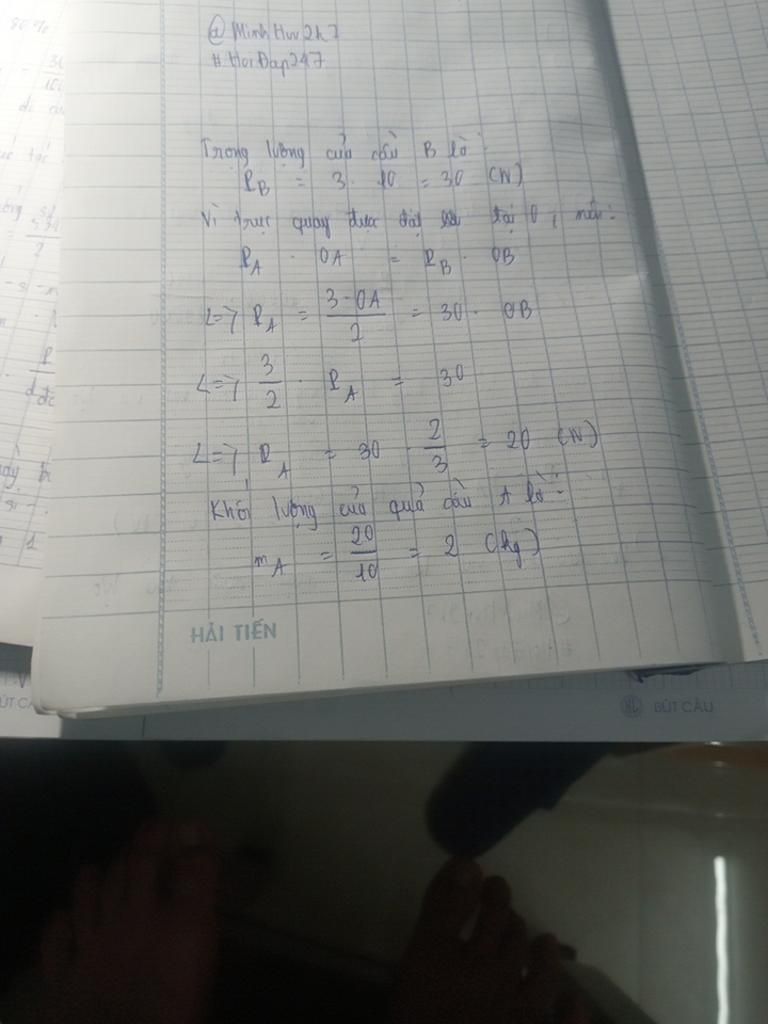 @MinhHuu2k7
#HoiDap247
Trọng lượng của cầu B là:
P_B = 3 . 10 = 30 (N)
Vì trục quay được đặt tại O, nên:
P_A . OA = P_B . OB
<=> P_A = \frac{3 - OA}{2} = 30 . OB
<=> \frac{3}{2} . P_A = 30
<=> P_A = 30 . \frac{2}{3} = 20 (N)
Khối lượng của quả cầu A là:
m_A = \frac{20}{10} = 2 (kg)
HẢI TIẾN
BÚT CẦU